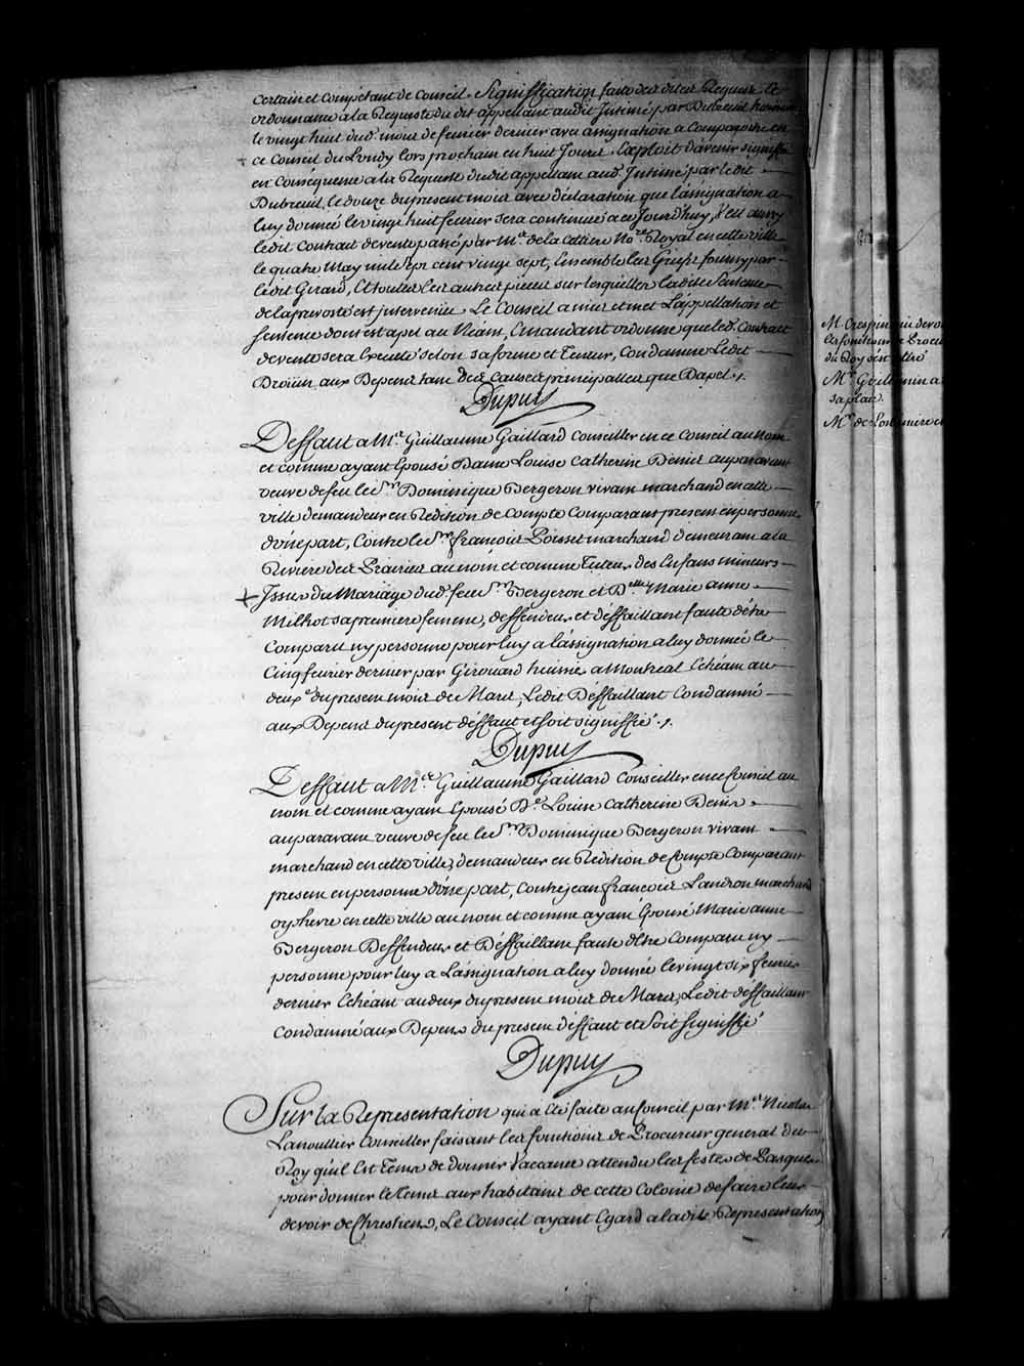 Certain et Compétant de Conseil. Signiffication faite des dites Requeste et
ordonnance a la Requeste du dit appellant audit Intimé par Dubreuil huissier
le vingt huit dud. mois de feurier dernier avec assignation a Comparoitre en
ce Conseil du Lundy lors prochain en huit Jours. Exploit d'avenir signiffié
en Conséquence a la Requeste dudit appellant aud. Intimé par ledit
Dubreuil, le douze du present mois avec déclaration que l'assignation a
luy donnée le vingt huit feurier sera continuée a ce Jourd'huy, Veu aussy
ledit Contrat de vente passé par Me. de la Cettiere Nore. Royal en cette ville
le quatre May mile sept cent vingt sept, Ensemble les Griefs fournys par
ledit Girard, Et toutes les autres pieces sur lesquelles ladite Sentence
de la prevosté est intervenüe. Le Conseil a mis et met L'appellation et
Sentence dont est apel au Néant, Emandant ordonne que led. Contrat
de vente sera Executé selon sa forme et Teneur, Condamne Ledit
Droüin aux Depens tant des Causes principalles que D'apel./.
Dupuy
Deffaut a Me. Guillaume Gaillard Conseiller en ce Conseil au Nom
et comme ayant Epousé Dame Louise Catherine Denis auparavant
veuve de feu le Sr. Dominique Bergeron vivant marchand en cette
ville demandeur en Redition de Compte Comparant present en personne
d'une part, Contre le Sr. françois Poisset marchand demeurant a la
Riviere des Prairies au nom et comme Tuteur des Enfans mineurs
+ Issus du Mariage dud. feu Sr. Bergeron et Delle. Marie anne
Milhot sa premiere femme, deffendeur et déffaillant faute d'être
Comparu ny personne pour luy a l'assignation a luy donnée le
Cinq feurier dernier par Girouard huissier a Montreal Echéant au
deuxe. du present mois de Mars, Ledit Déffaillant Condamné
aux Depens du present déffaut et soit signiffié./.
Dupuy
Deffaut a Me. Guillaume Gaillard Conseiller en ce Conseil au
nom et comme ayant Epousé De. Louise Catherine Denis
auparavant veuve de feu le Sr. Dominique Bergeron vivant
marchand en cette ville, demandeur en Redition de Compte Comparant
present en personne d'une part, Contre jean françois Landron marchand
orphevre en cette ville au nom et comme ayant Epousé Marie anne
Bergeron Deffendeur et Déffaillant faute d'Etre Comparu ny
personne pour luy a L'assignation a luy donnée le vingt six feurier
dernier Echéant au deux du present mois de Mars, Ledit deffaillant
Condamné aux Depens du present déffaut et Soit Signiffié
Dupuy
Sur La Representation qui a été faite au Conseil par Me. Nicolas
Lanoullier Conseiller faisant les fonctions de Procureur general du
Roy qu'il Est Tems de donner Vacance attendu les festes de Pasques
pour donner le tems aux habitans de cette Colonie de faire leur
devoir de Chrestiens, Le Conseil ayant Egard a la dite Representation
M. Crespin
les fonctions de Procu
du Roy
Mr. Guillemin a
sa place
Mr. de